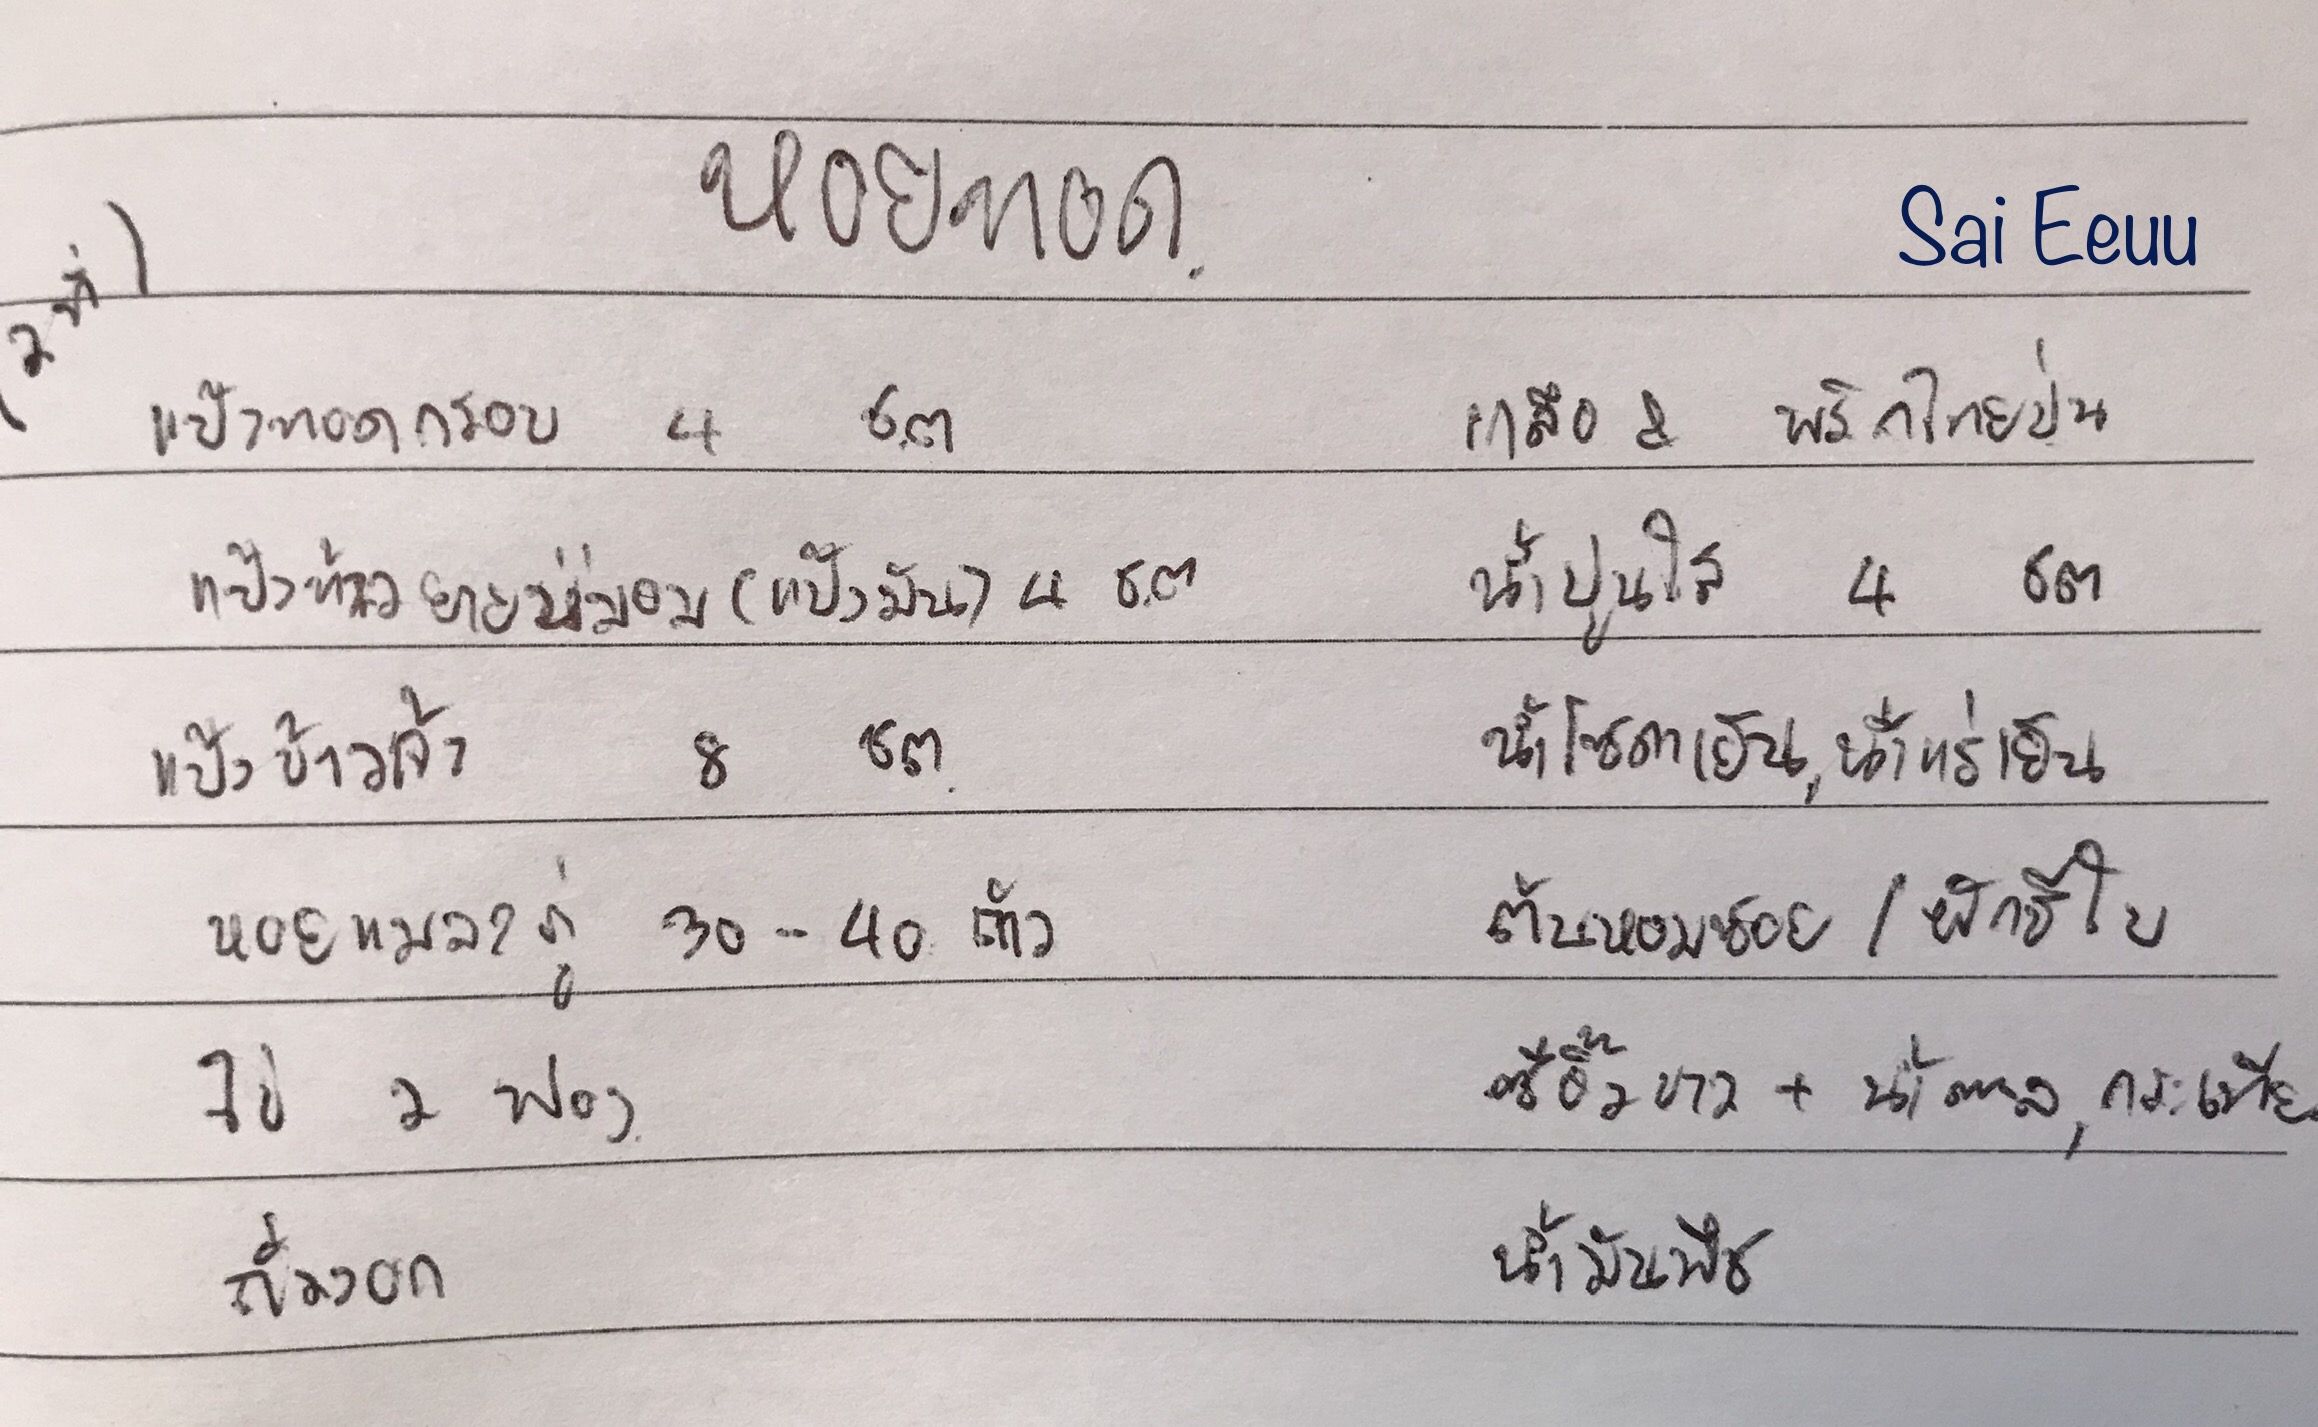 หอยทอด.
Sai Eeuu
(2 ที่)
แป้งทอดกรอบ 4 ช.ต
แป้งท้าวยายหม่อม (แป้งมัน) 4 ช.ต
แป้งข้าวเจ้า 8 ชต.
หอยแมลงภู่ 30-40 ตัว
ไข่ 2 ฟอง.
ถั่วงอก
เกลือ & พริกไทยป่น
น้ำปูนใส 4 ชต
น้ำโซดาเย็น, น้ำแร่เย็น
ต้นหอมซอย / ผักชีใบ
ซีอิ๊วขาว + น้ำตาล, กระเทีย
น้ำมันพืช